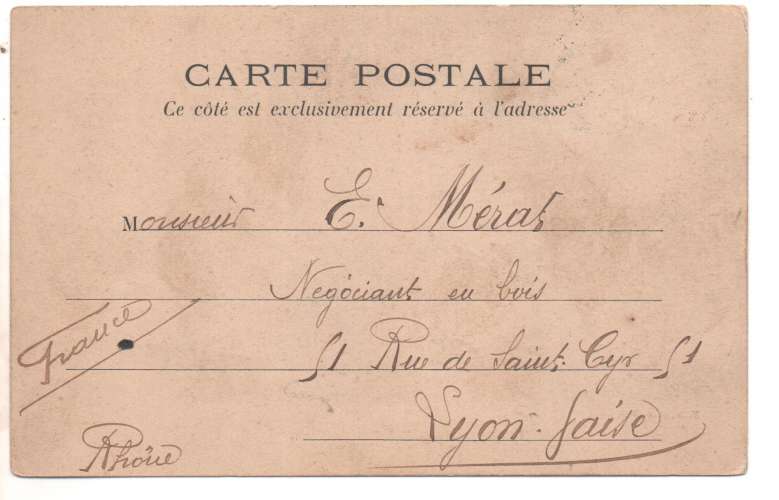 CARTE POSTALE
Ce côté est exclusivement réservé à l'adresse
Monsieur E. Mérat
Negóciant en bois
France
51 Rue de Saint-Cyr 51
Lyon-Vaise
Rhône